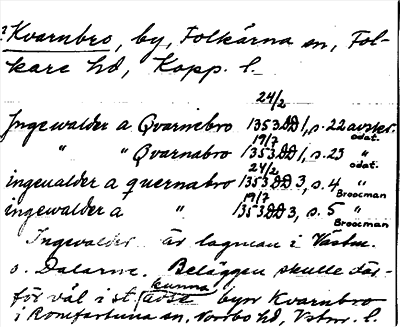 ? Kvarnbro, by, Folkärna sn, Fol-
kare hd, Kopp. l.
24/2
Ingewalder a Qvarnebro 1353 DD 1, s. 22 avskr.
19/7 odat.
" " Qvarnabro 1353 DD 1, s. 23 "
24/2 odat.
ingeualder a quernabro 1353 DD 3, s. 4 "
19/7 Broocman
ingewalder a " 1353 DD 3, s. 5 "
Broocman
Ingewalder är lagman i Västm.
o. Dalarne. Beläggen skulle där-
för väl i st. kunna avse byn Kvarnbro
i Romfartuna sn, Norrbo hd, Vstm. l.